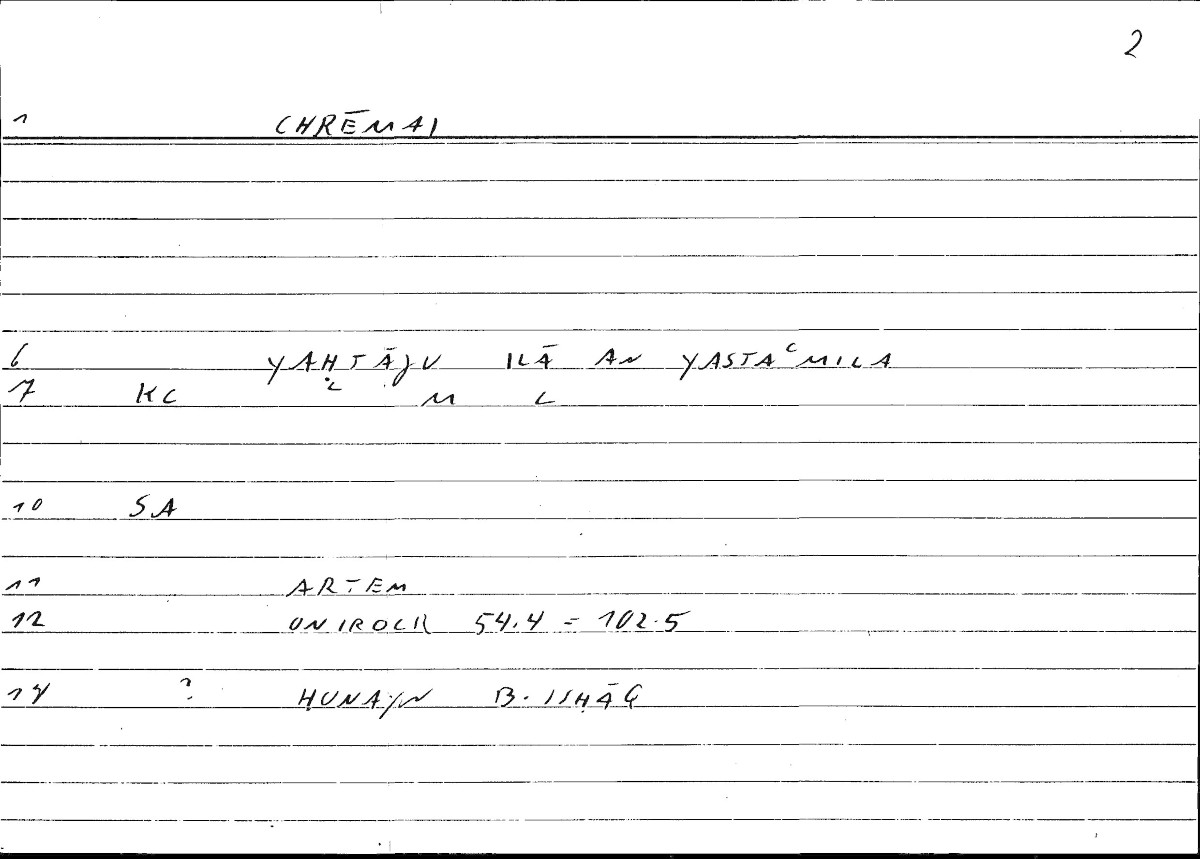 2
1 CHRĒMAI
6 YAḤTĀJU ILĀ AN YASTAʿMILA
7 KC L M L
10 SA
11 ARTEM
12 ONIROCR 54.4 = 102.5
14 ? ḤUNAYN B. ISḤĀQ